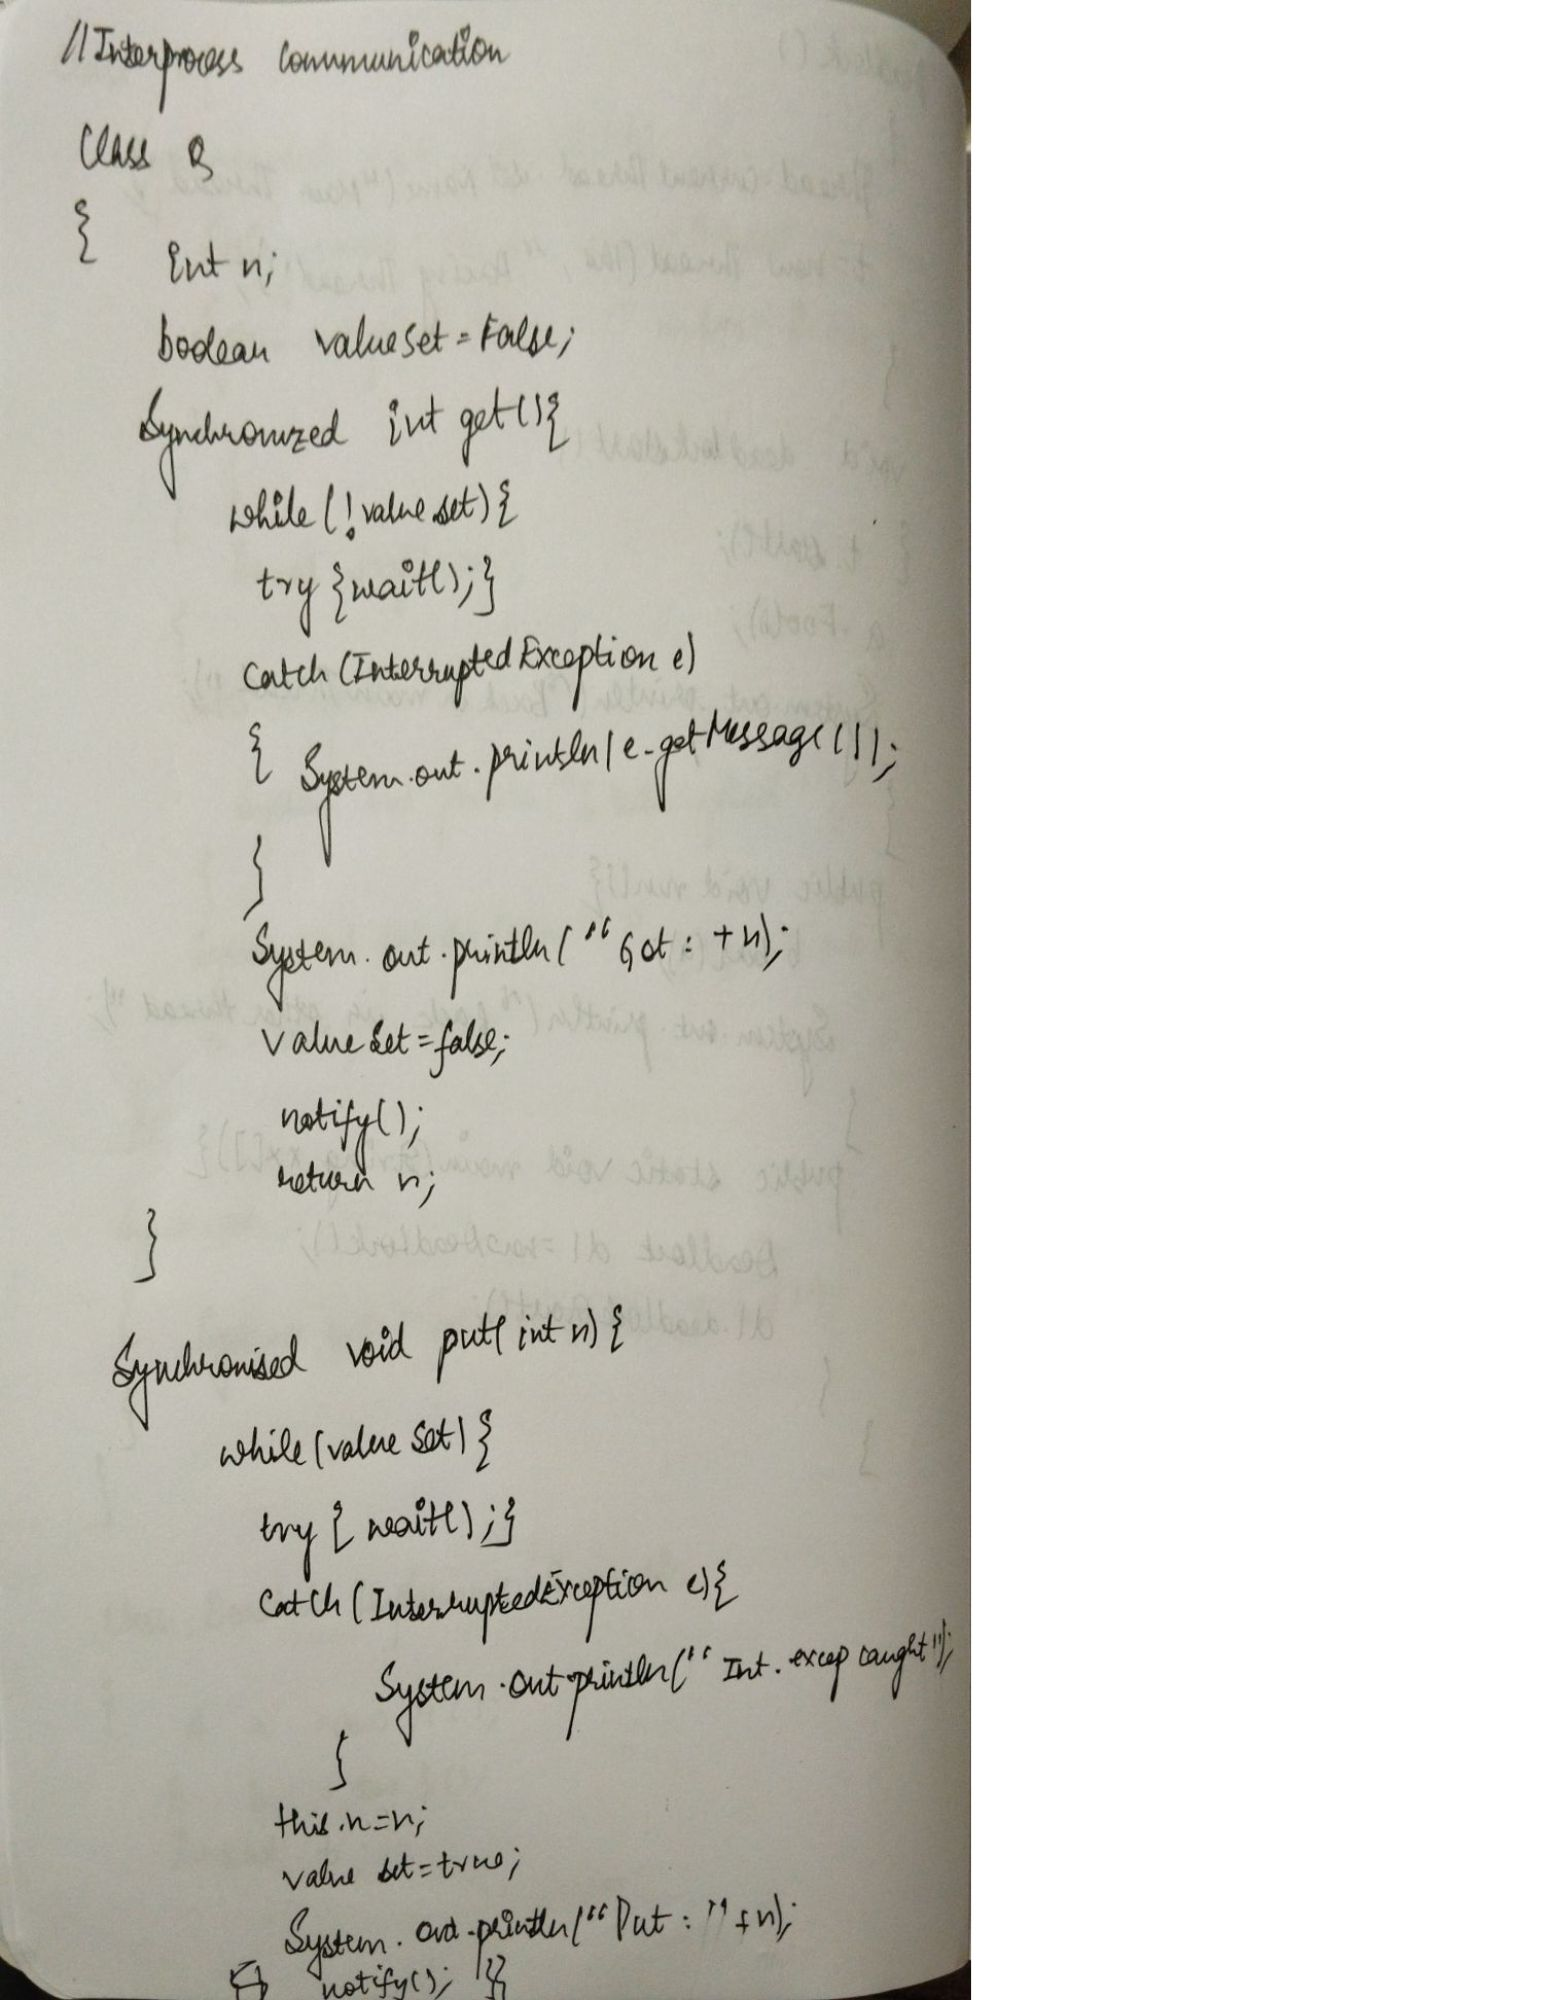 //Interprocess Communication
Class Q
{
int n;
boolean valueSet = False;
Synchronized int get(){
while(!value set){
try {wait();}
Catch (Interrupted Exception e)
{ System.out.println(e.getMessage());
}
System.out.println(“ Got : +n);
value Set = false;
notify();
return n;
}
Synchronised void put( int n) {
while (value Set) {
try { wait();}
Catch (InterruptedException e){
System.out.println(“ Int. excep caught");
}
this.n=n;
value set=true;
System.out.println(“Put : " +n);
notify(); }}